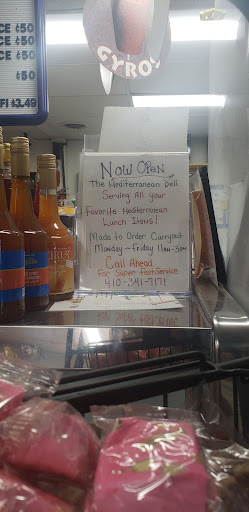 GYROS
ICE ¢50
¢50
¢50
¢50
$3.49
Now Open
The Mediterranean Deli
Serving All your
Favorite Mediterranean
Lunch Items!
Made to Order Carryout
Monday - Friday 11am-3pm
Call Ahead
For Super Fast Service
410-341-7171